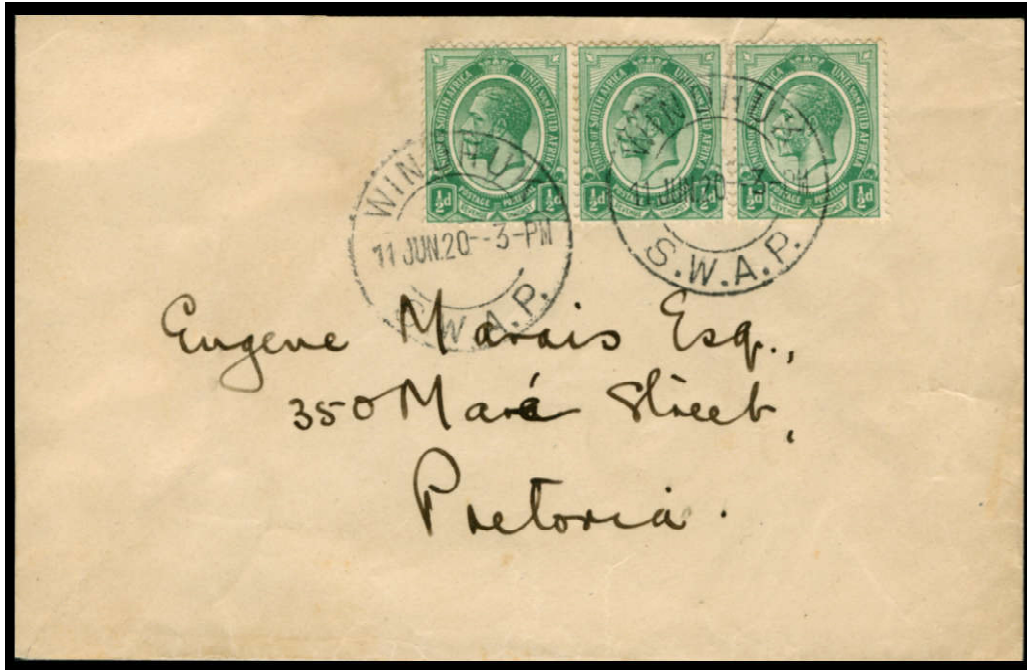 UNION OF SOUTH AFRICA UNIE VAN ZUID AFRIKA
½d POSTAGE POSTZEGEL ½d
REVENUE INKOMST
UNION OF SOUTH AFRICA UNIE VAN ZUID AFRIKA
½d POSTAGE POSTZEGEL ½d
REVENUE INKOMST
UNION OF SOUTH AFRICA UNIE VAN ZUID AFRIKA
½d POSTAGE POSTZEGEL ½d
REVENUE INKOMST
WINDHUK
11 JUN.20--3-PM
S.W.A.P.
WINDHUK
11 JUN.20--3-PM
S.W.A.P.
Eugene Marais Esq.,
350 Maré Street,
Pretoria.